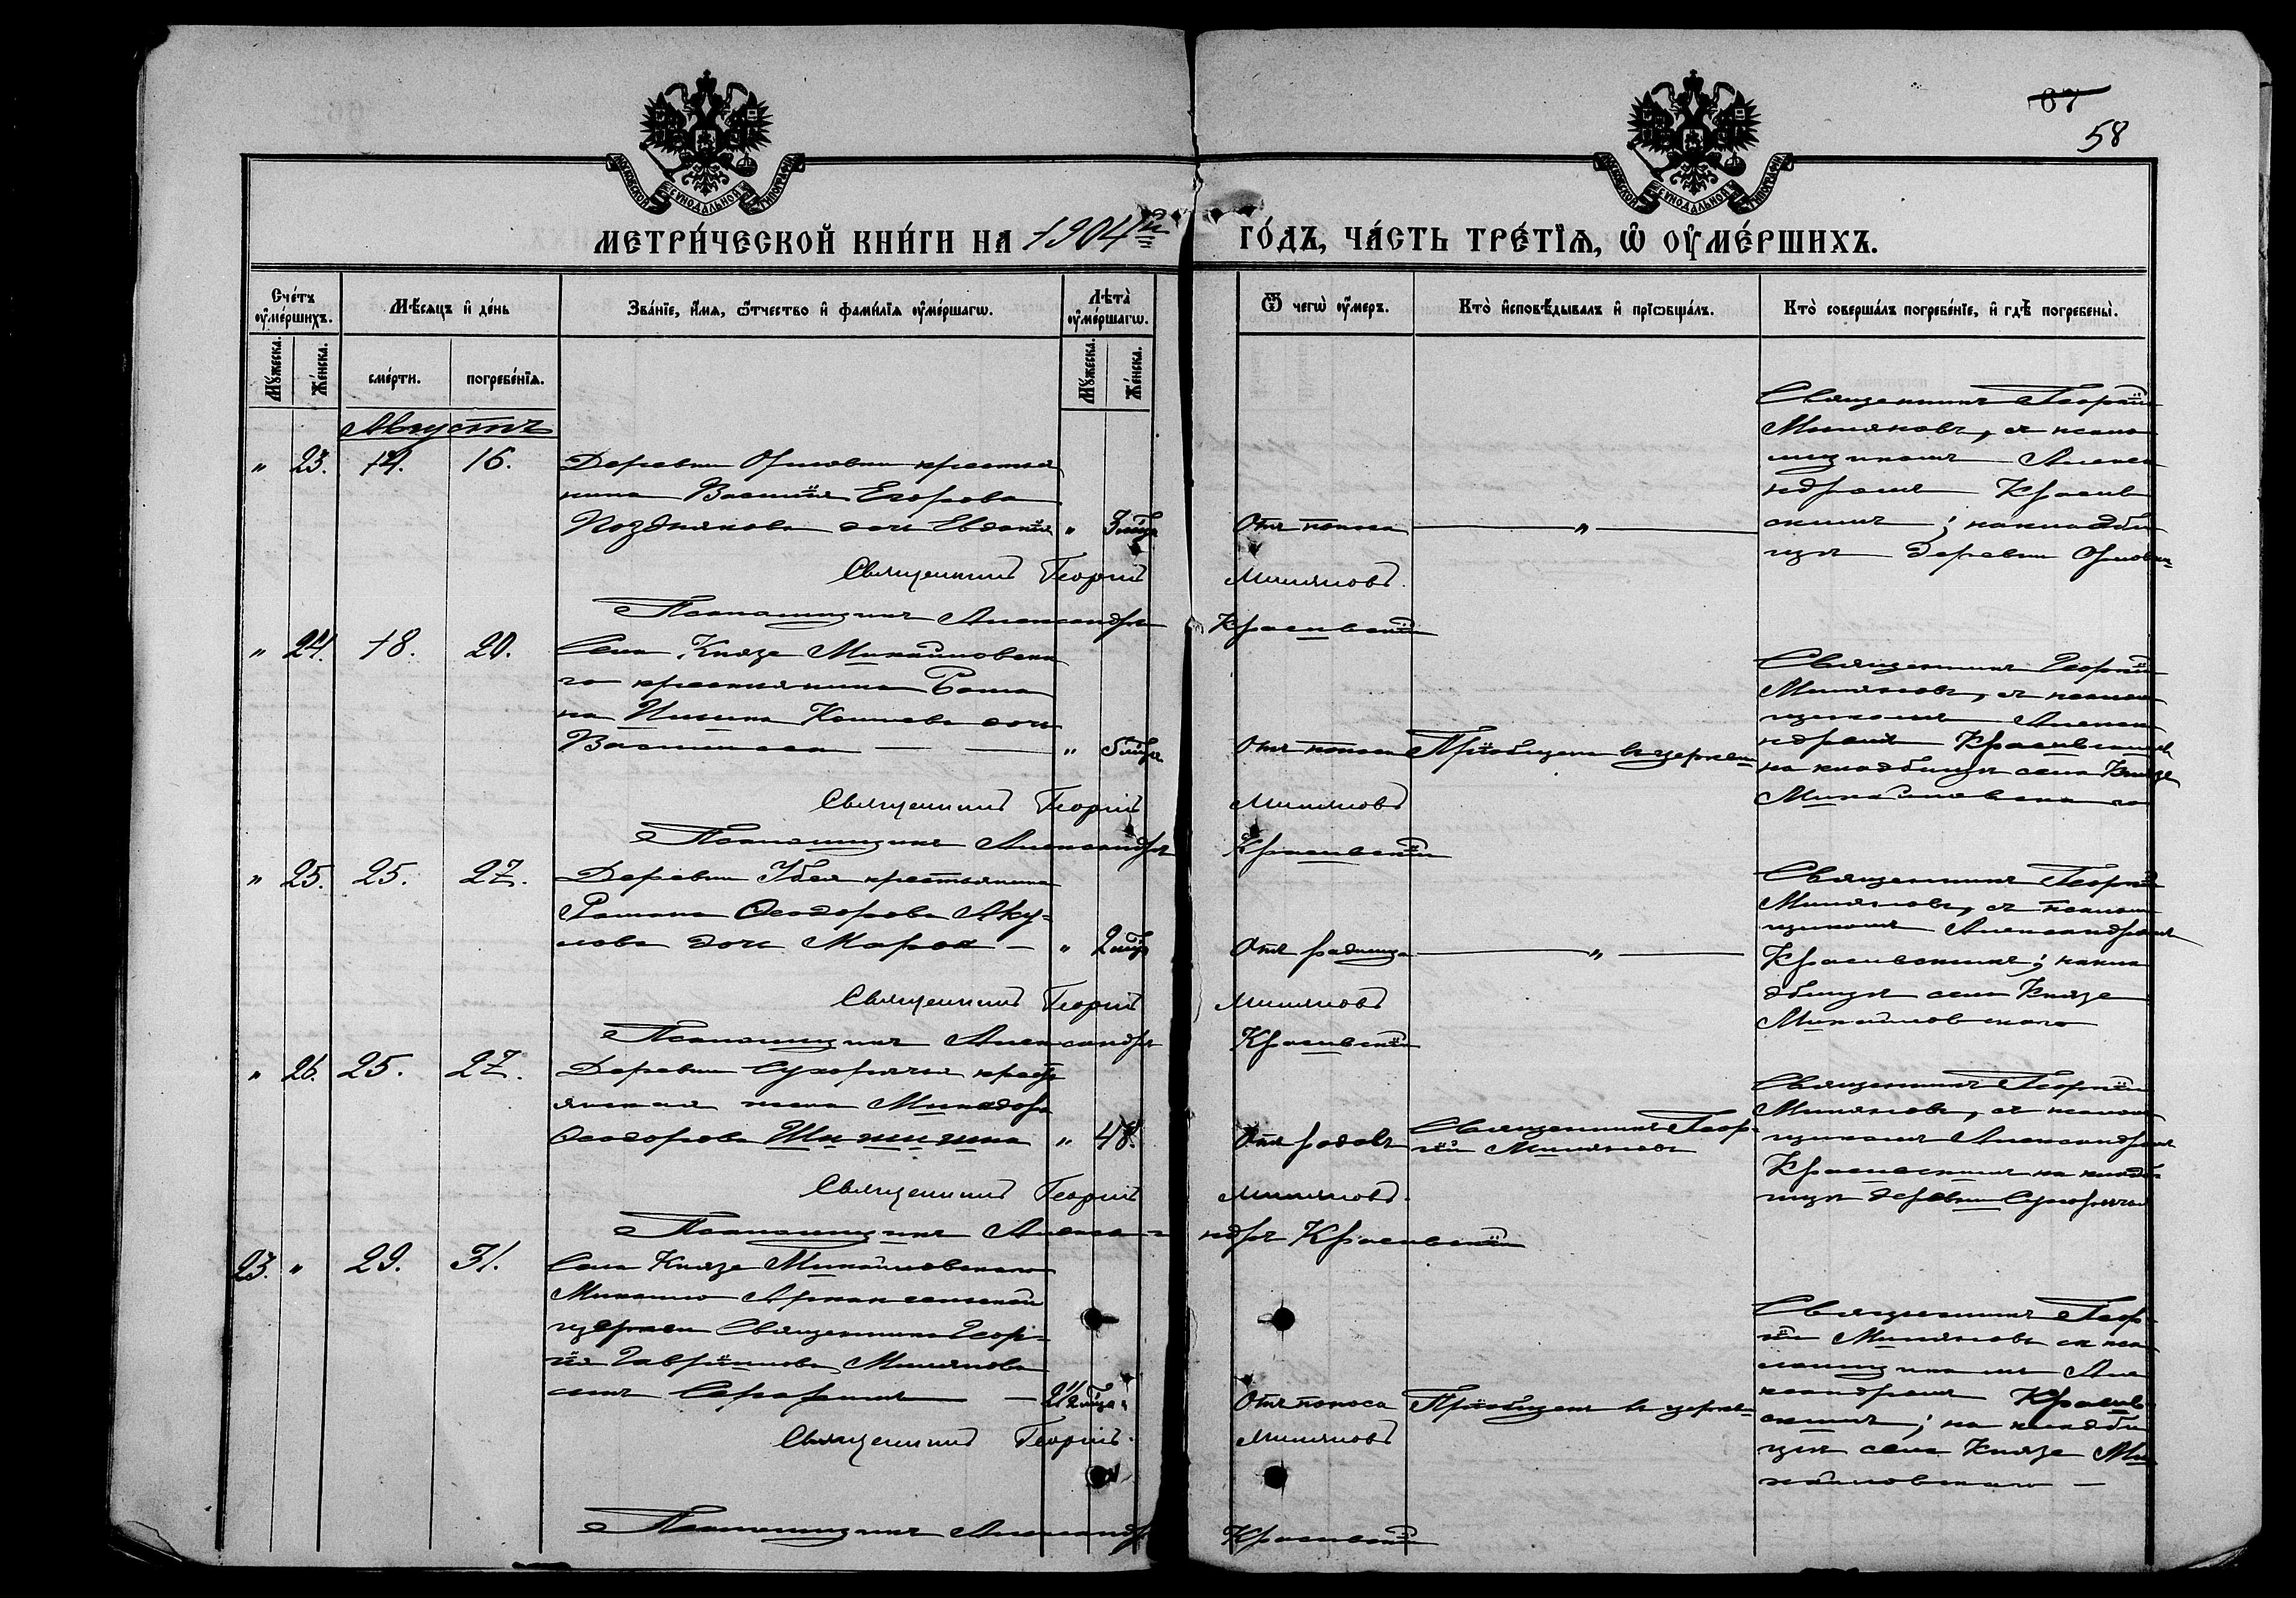 67
58
МОСКОВСКОЙ СѴНОДАЛЬНОЙ ТИПОГРАФІИ
МОСКОВСКОЙ СѴНОДАЛЬНОЙ ТИПОГРАФІИ
МЕТРИ́ЧЕСКОЙ КНИ́ГИ НА 1904й ГО́ДЪ, ЧА́СТЬ ТРЕ́ТЇѦ, Ѡ҆ ОУ҆МЕ́РШИХЪ.
Сче́тъ оу҆ме́ршихъ.
Мѣ́сѧцъ и҆ де́нь
Зва́нїе, и҆́мѧ, ѻ҆́тчество и҆ фами́лїѧ оу҆ме́ршагѡ.
Лѣта̀ оу҆ме́ршагѡ.
Ѿ чегѡ̀ оу҆́меръ.
Кто̀ и҆сповѣ́дывалъ и҆ прїѡбща́лъ.
Кто̀ соверша́лъ погребе́нїе, и҆ гдѣ̀ погребены̀.
Мꙋ́жеска.
Же́нска.
сме́рти.
погребе́нїѧ.
Мꙋ́жеска.
Же́нска.
Августъ
" 23. 14. 16. Деревни Орловки крестья
нина Василія Егорова
Позднякова дочь Евдокія " 3 мѣсца Отъ поноса "
Священникъ Георгій
Миляковъ, съ псалом
щикомъ Алекса
ндромъ Красив
скимъ; на кладби
щѣ деревни Орловки
Священникъ Георгій Миляковъ.
Псаломщикъ Александръ Красивскій
" 24. 18. 20. Села Князе Михайловска
го крестьянина Рома
на Кошелева дочь
Василисса " 6 мѣсца Отъ поноса Пріобщена въ церкви
Священникъ Георгій
Миляковъ, съ псалом
щикомъ Алекса
ндромъ Красивскимъ
на кладбищѣ села Князе
Михайловскаго
Священникъ Георгій Миляковъ
Псаломщикъ Александръ Красивскій
" 25. 25. 27. Деревни крестьянина
Романа Ѳеодорова Аку-
лова дочь Марѳа " 2 мѣсца Отъ родимца "
Священникъ Георгій
Миляковъ, съ псалом
щикомъ Александромъ
Красивскимъ; на кла
дбищѣ села Князе
Михайловскаго
Священникъ Георгій Миляковъ
Псаломщикъ Александръ Красивскій
" 26. 25. 27. Деревни Сухорѣчья крестья
янская жена Миладора
Ѳеодорова Шишкина " 48. Отъ родовъ Священникъ Геор-
гій Миляковъ
Священникъ Георгій
Миляковъ, съ псалом
щикомъ Александромъ
Красивскимъ на кладби
щѣ деревни Сухорѣчья
Священникъ Георгій Миляковъ.
Псаломщикъ Алекса- ндръ Красивскій
23. " 29. 31. Села Князе Михайловскаго
Михаило Архангельской
церкви Священника Геор-
гія Гавріилова Милякова
сынъ Серафимъ 2 1/2 мѣсца " Отъ поноса Пріобщенъ въ церкви
Священникъ Геор-
гій Миляковъ съ пса
ломщикомъ Але
ксандромъ Красив
скимъ; на кладби
щѣ села Князе Ми
хайловскаго
Священникъ Георгій Миляковъ
Псаломщикъ Александръ Красивскій